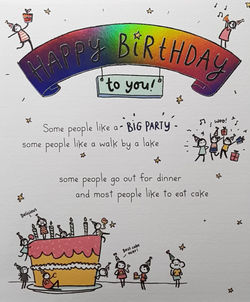 HAPPY BiRTHDAY
to you!
Some people like a BIG PARTY
woo!
some people like a walk by a lake
some people go out for dinner
and most people like to eat cake
Delicious!
Best cake
ever!